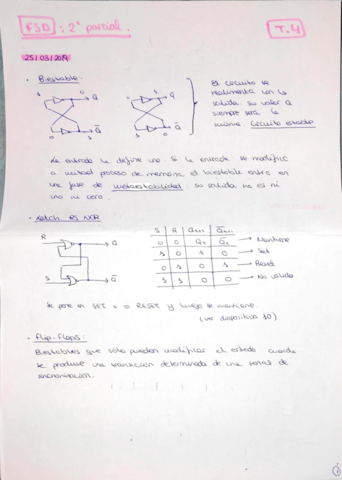 FSD: 2º parcial.
T.4
25/03/2019
· Biestable:
Q
Q̅
Q
Q̅
El circuito se
realimenta con la
salida. Su valor a
siempre será la
misma. Circuito estado
La entrada la define uno. Si la entrada se modifica
a mitad proceso de memoria, el biestable entra en
una fase de metaestabilidad su salida no es ni
uno ni cero.
· Latch RS NOR
R
Q
S
Q̅
S R Qt+1 Q̅t+1
0 0 Qt Q̅t → Mantiene
1 0 1 0 → Set
0 1 0 1 → Reset
1 1 0 0 → No válido
Se pone en SET o RESET y luego se mantiene
(ver diapositiva 10)
· Flip-Flops:
Biestables que sólo pueden modificar el estado cuando
se produce una transición determinada de una señal de
sincronización.
1